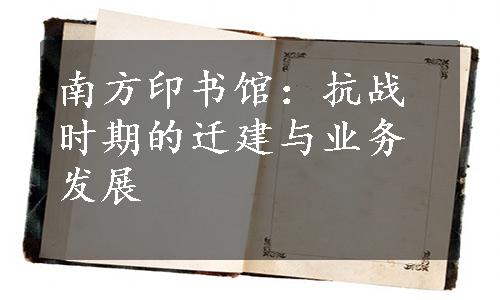 南方印书馆：抗战
时期的迁建与业务
发展